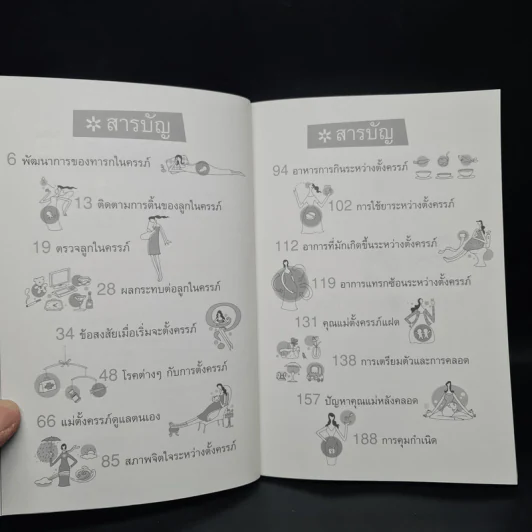 สารบัญ
6 พัฒนาการของทารกในครรภ์
13 ติดตามการดิ้นของลูกในครรภ์
19 ตรวจลูกในครรภ์
28 ผลกระทบต่อลูกในครรภ์
34 ข้อสงสัยเมื่อเริ่มจะตั้งครรภ์
48 โรคต่างๆ กับการตั้งครรภ์
66 แม่ตั้งครรภ์ดูแลตนเอง
85 สภาพจิตใจระหว่างตั้งครรภ์
สารบัญ
94 อาหารการกินระหว่างตั้งครรภ์
102 การใช้ยาระหว่างตั้งครรภ์
112 อาการที่มักเกิดขึ้นระหว่างตั้งครรภ์
119 อาการแทรกซ้อนระหว่างตั้งครรภ์
131 คุณแม่ตั้งครรภ์แฝด
138 การเตรียมตัวและการคลอด
157 ปัญหาคุณแม่หลังคลอด
188 การคุมกำเนิด